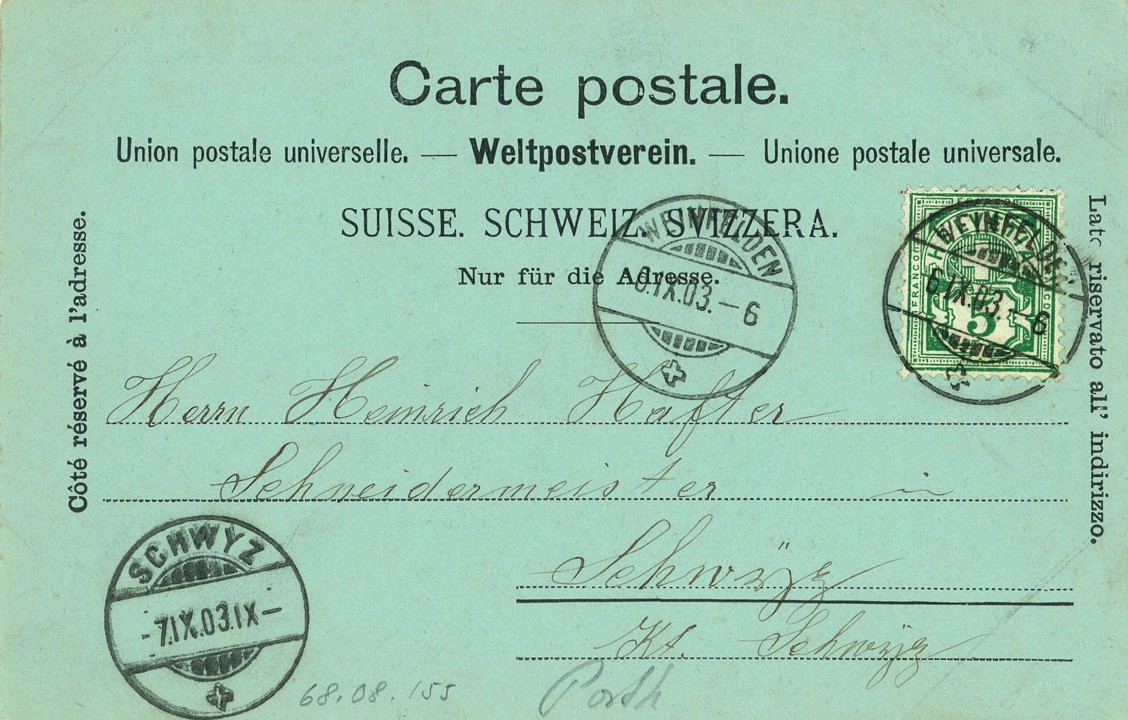 Carte postale.
Union postale universelle. — Weltpostverein. — Unione postale universale.
SUISSE. SCHWEIZ. SVIZZERA.
Nur für die Adresse.
Côté réservé à l'adresse.
Lato riservato all' indirizzo.
WEYNFELDEN
6.IX.03.—6
WEYNFELDEN
6.IX.03.—6
FRANCO
HELVETIA
5
Herrn Heinrich Hafter
Schneidermeister in
Schwÿz
Kt. Schwÿz
SCHWYZ
-7.IX.03.IX-
68.08.155